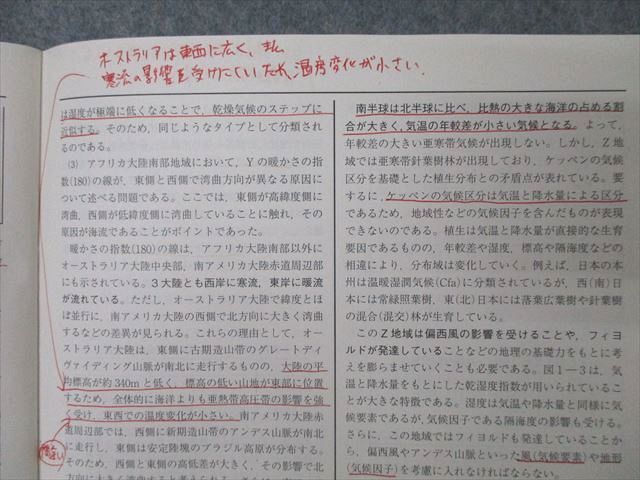 オーストラリアは東西に広く、また
寒流の影響を受けにくいため、温度変化が小さい.
は湿度が極端に低くなることで，乾燥気候のステップに
近似する。そのため，同じようなタイプとして分類され
るのである。
(3) アフリカ大陸南部地域において，Ｙの暖かさの指
数(180)の線が，東側と西側で湾曲方向が異なる原因に
ついて述べる問題である。ここでは，東側が高緯度側に
湾曲，西側が低緯度側に湾曲していることに触れ，その
原因は海流であることがポイントであった。
暖かさの指数(180)の線は，アフリカ大陸南部以外に
オーストラリア大陸中央部，南アメリカ大陸赤道周辺部
にも示されている。3大陸とも西岸に寒流，東岸に暖流
が流れている。ただし，オーストラリア大陸で緯度とほ
ぼ並行に，南アメリカ大陸の西側で北方向に大きく湾曲
するなどの差異が見られる。これらの理由として，オー
ストラリア大陸は，東側に古期造山帯のグレートディ
ヴァイディング山脈が南北に走行するものの，大陸の平
均標高が約340mと低く，標高の低い山地が東部に位置
するため，全体的に海洋よりも亜熱帯高圧帯の影響を強
く受け，東西での温度変化が小さい。南アメリカ大陸赤
道周辺部では，西側に新期造山帯のアンデス山脈が南北
に走行し，東側は安定陸塊のブラジル高原が分布する。
そのため，西側と東側の高低差が大きく，その影響で北
南半球は北半球に比べ，比熱の大きな海洋の占める割
合が大きく，気温の年較差が小さい気候となる。よって，
年較差の大きい亜寒帯気候が出現しない。しかし，Ｚ地
域では亜寒帯針葉樹林が出現しており，ケッペンの気候
区分を基礎とした植生分布との矛盾点が表れている。要
するに，ケッペンの気候区分は気温と降水量による区分
であるため，地域性などの気候因子を含んだものが表現
できないのである。植生は気温と降水量が直接的な生育
要因であるものの，年較差や湿度，標高や隔海度などの
相違により，分布域は変化していく。例えば，日本の本
州は温暖湿潤気候(Cfa)に分類されているが，西(南)日
本には常緑照葉樹，東(北)日本には落葉広葉樹や針葉樹
の混合(混交)林が生育している。
このＺ地域は偏西風の影響を受けることや，フィヨ
ルドが発達していることなどの地理の基礎力をもとに考
えを膨らませていくことも必要である。図1－3は，気
温と降水量をもとにした乾湿度指数が用いられているこ
とが大きな特徴である。湿度は気温や降水量と同様に気
候要素であるが，気候因子である隔海度の影響も受ける。
さらに，この地域ではフィヨルドも発達していることか
ら，偏西風やアンデス山脈といった風(気候要素)や地形
(気候因子)を考慮に入れなければならない。